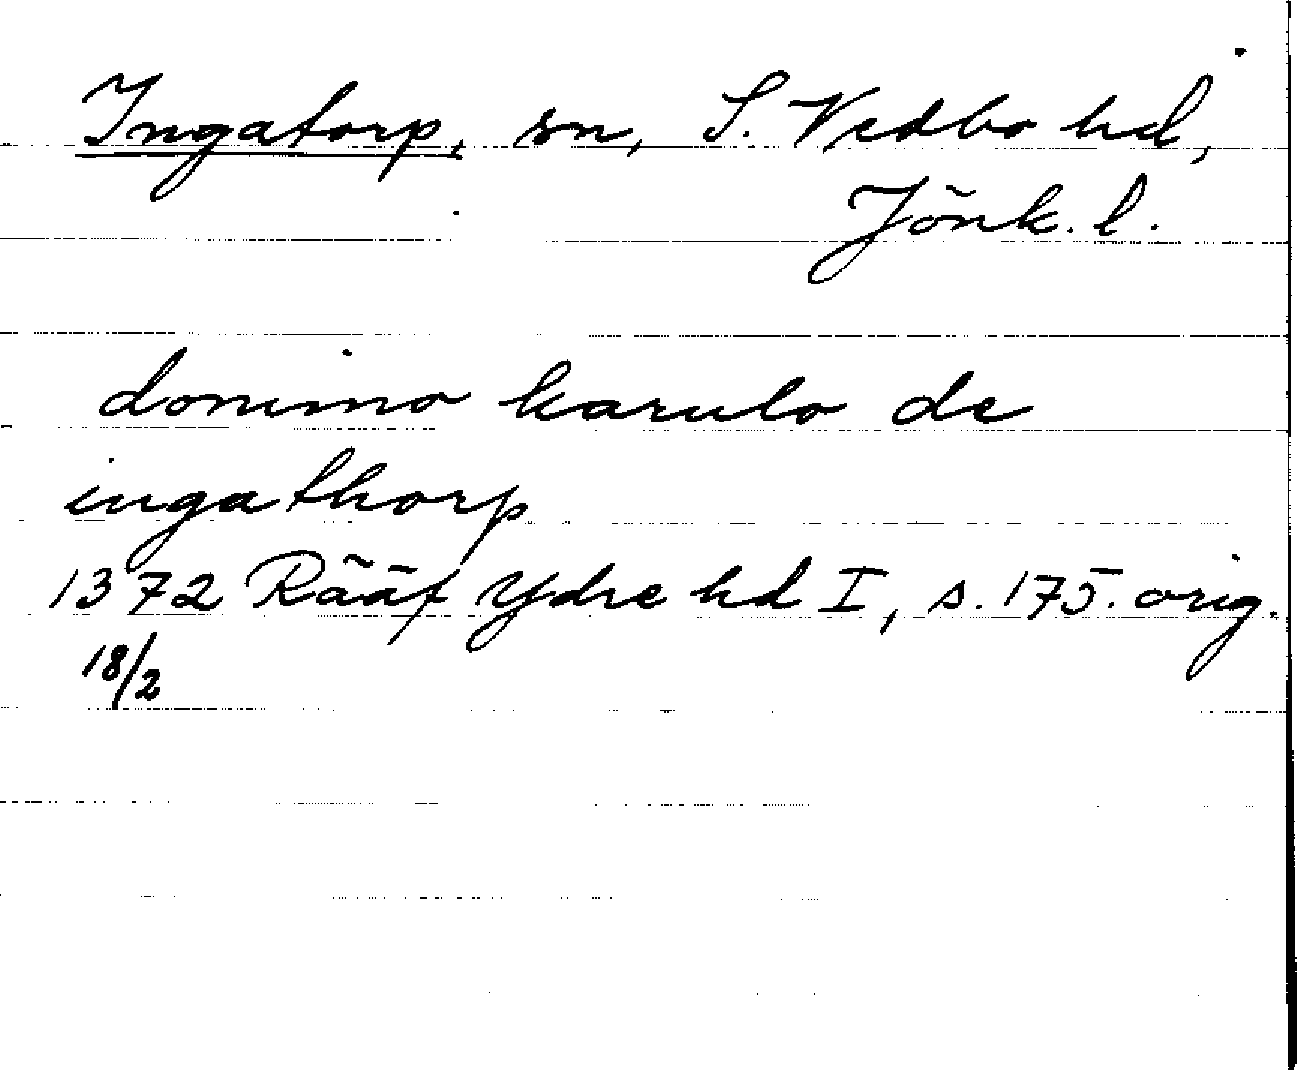 Ingatorp, sn, S. Vedbo hd,
Jönk. l.
domino karulo de
ingathorp
1372 Rääf Ydre hd I, s. 175. orig.
18/2